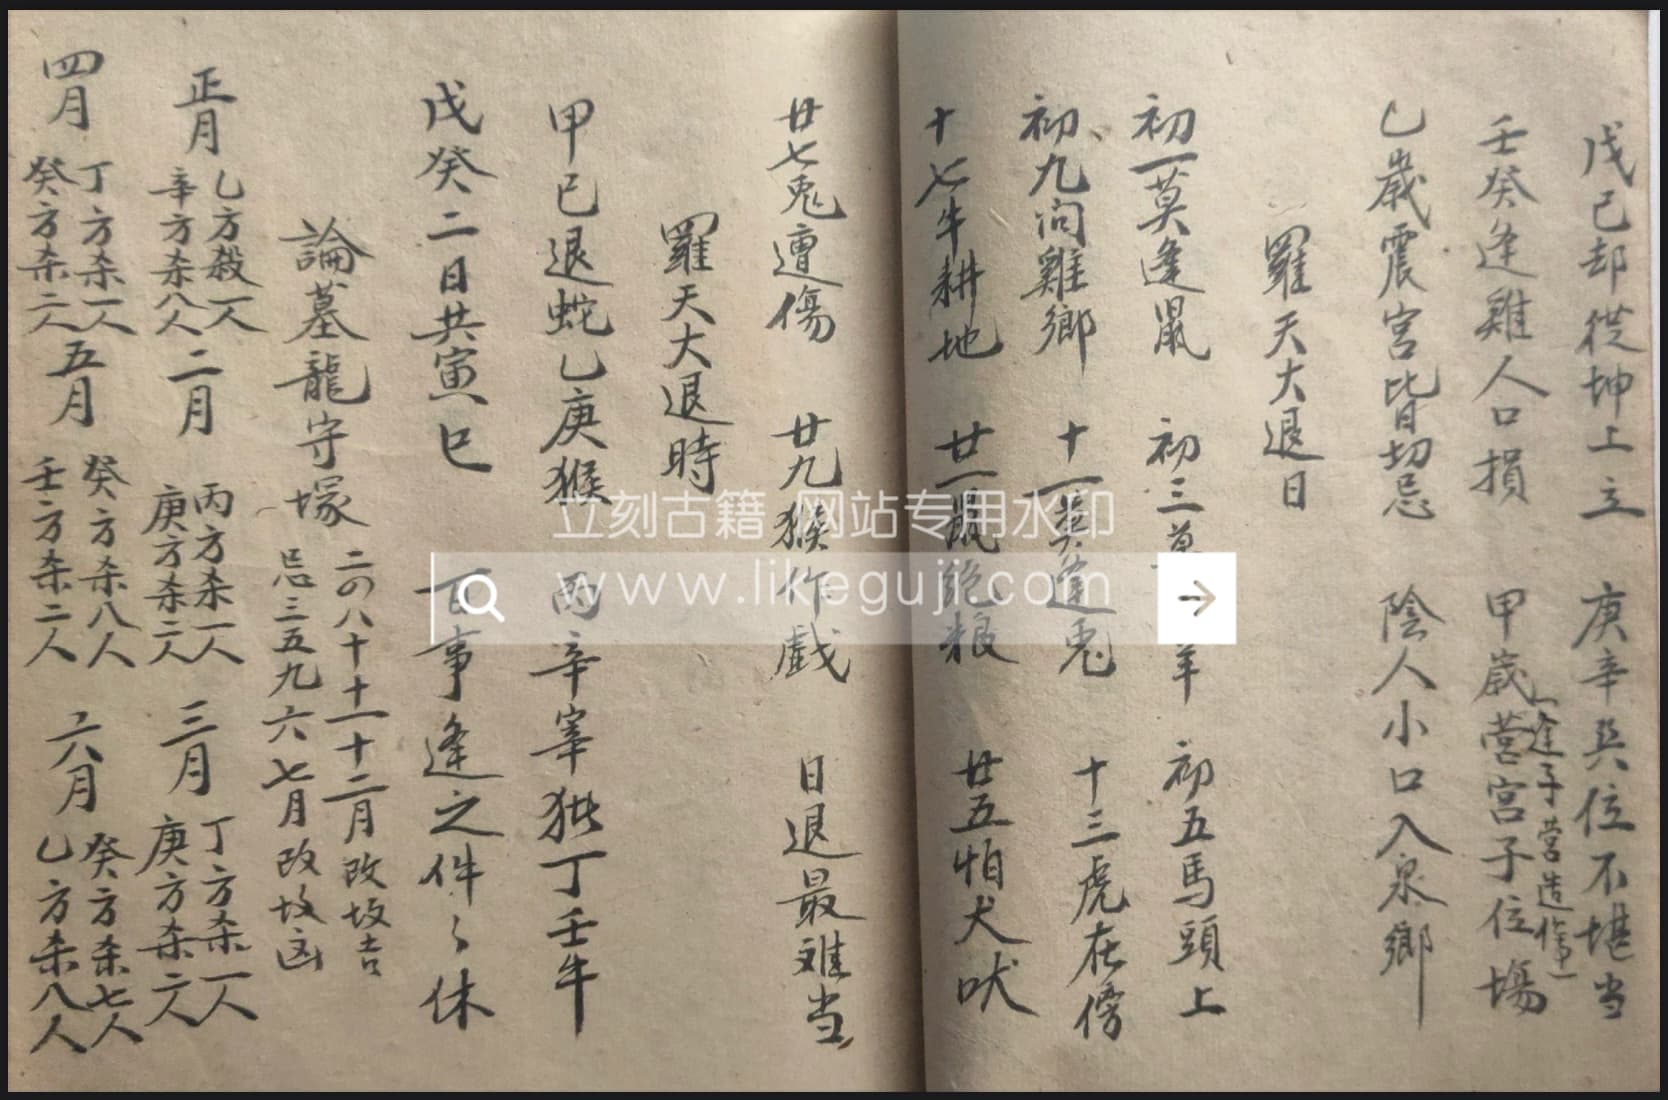 戊己却從坤上立　庚辛巽位不堪当
壬癸逢雞人口損　甲歲營宮子位場
逢子營造作事
乙歲震宮皆切忌　陰人小口入泉鄉
羅天大退日
初一莫逢鼠　初三　羊　初五馬頭上
初九问雞鄉　十一莫逢兎　十三虎在傍
十七牛耕地　廿一鼠絕粮　廿五怕犬吠
廿七兎遭傷　廿九猴作戲　日退最难当
羅天大退時
甲已退蛇乙庚猴　丙辛宰㹠丁壬牛
戊癸二日共寅巳　百事逢之件々休
論墓龍守塚
二四八十十一十二月改坟吉
忌三五九六七月改坟凶
正月
乙方殺一人
辛方杀八人
二月
丙方杀一人
庚方杀二人
三月
丁方杀一人
庚方杀二人
四月
丁方杀一人
癸方杀二人
五月
癸方杀八人
壬方杀二人
六月
癸方杀七人
乙方杀八人
立刻古籍 网站专用水印
www.likeguji.com